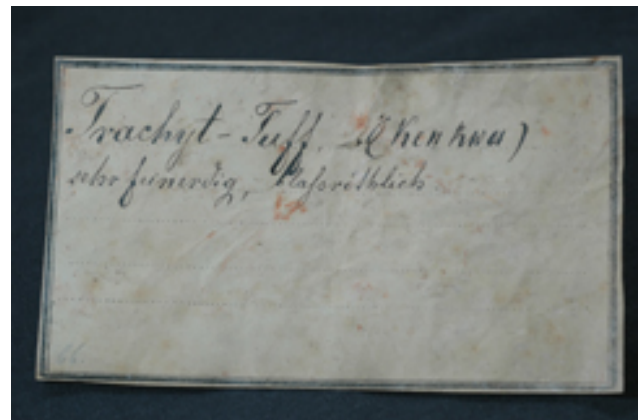 Trachyt-Tuff. (Kenkwa)
sehr feinerdig, blaßröthlich.